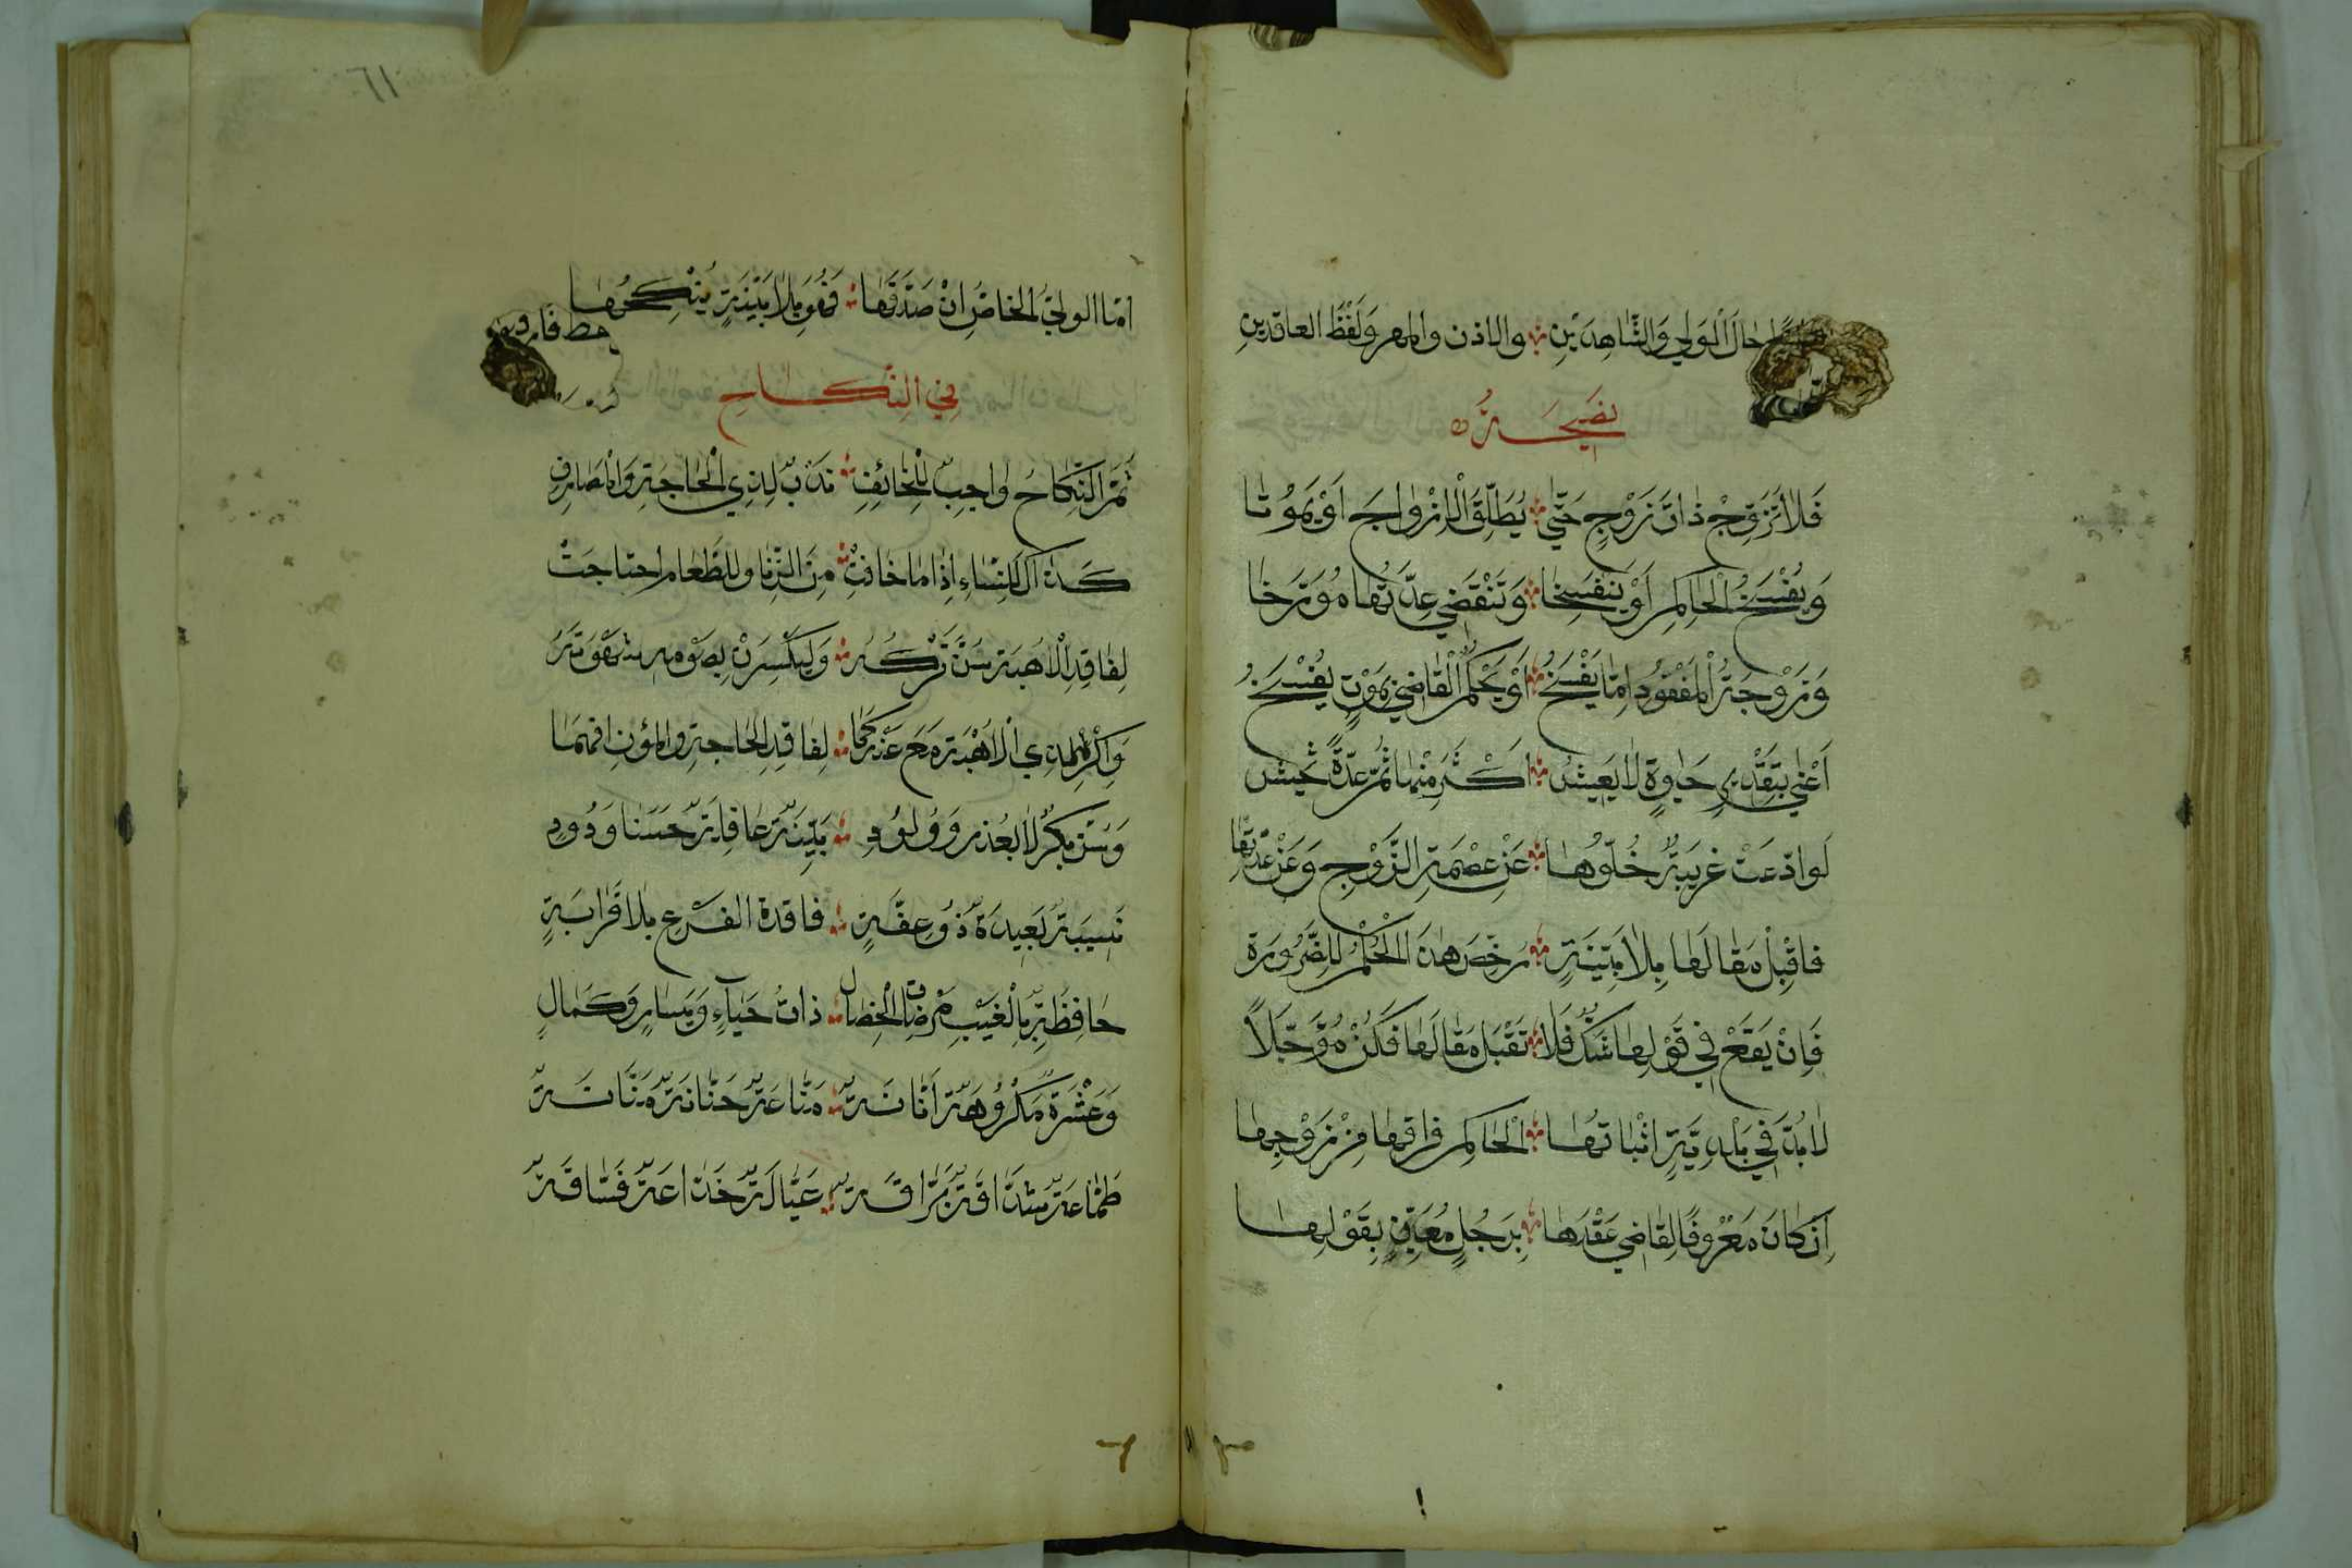 حال الولي والشاهدين والاذن والمهر ولفظ العاقدين
نَصِيحَةٌ
فَلَا تُزَوِّجْ ذَاتَ زَوْجٍ حَتَّى يُطَلِّقَ الْازْوَاجَ اَوْ يَمُوْتَا
وَيُفْسَخُ الْحَاكِمِ اَوْ يَنْفَسِخَا وَتَنْقَضِي عِدَّتُهَا مُوَرَّخَا
وَزَوْجَةُ الْمَفْقُودِ اِمَّا يَفْسَخُ اَوْ يَحْكُمُ الْقَاضِي بِمَوْتٍ يُفْسَخُ
اَعْنِي بِتَقْدِيرِ حَيٰوةٍ لَا يَعِيْشُ اَكْثَرَ مِنْهَا ثُمَّ عِدَّةً تَحِيْشُ
لَوِ ادَّعَتْ غَرِيبَةٌ خُلُوَّهَا عَنْ عِصْمَةِ الزَّوْجِ وَعَنْ عِدَّتِهَا
فَاقْبِلْ مَقَالَهَا بِلَا بَيِّنَةٍ رُخِّصَ هٰذَا الْحُكْمُ لِلضَّرُورَةِ
فَاِنْ يَقَعْ فِي قَوْلِهَا شَكٌّ فَلَا تَقْبَلْ مَقَالَهَا فَكُنْ مُؤَجِّلاً
لَا بُدَّ فِي بَلْدِيَّةٍ اِثْبَاتُهَا الْحَاكِمِ فِرَاقَهَا مِنْ زَوْجِهَا
اِنْ كَانَ مَعْرُوفًا لِقَاضِي عَقْدَهَا بِرَجُلٍ مُعَيَّنٍ بِقَوْلِهَا
٦١
امّا الولِيّ الخاصُ اِنْ صَدَقَهَا فَهُوَ بِلَا بَيِّنَةٍ يُنْكِحُهَا
فِي النِّكَاحِ
ثُمَّ النِّكَاحُ وَاجِبٌ لِلْخَائِفِ نَدْبٌ لِذِي الْحَاجَةِ وَالْمَصَارِفِ
كَذَاكَ لِلنِّسَاءِ اِذَا مَا خَافَتْ مِنَ الزِّنَا وللطَّعَامِ احْتَاجَتْ
لِفَاقِدِ الْاُهْبَةِ سُنَّ تَرْكُهُ وَلْيَكْسِرَنْ بِصَوْمِهِ شَهْوَتَهُ
وَاكْرَهْ لِذِي الْاُهْبَةِ مَعَ عَذْرٍ كَمَا لِفَاقِدِ الْحَاجَةِ والمُؤَنِ افْهَمَا
وَسُنَّ بِكْرٌ لَا بِعُذْرٍ وَوُلُوْدِ بَيِّنَةٌ عَاقِلَةٌ حَسَنَا وَدُودِ
نَسِيبَةٌ بَعِيدَةٌ ذُو عِفَّةٍ فَاقِدَة الفَرْعِ بِلَا قَرَابَةٍ
حَافِظَةٌ بِالْغَيْبِ مَرْضَاتِ الْخِصَالِ ذَاتُ حَيَآءٍ وَيَسَارٍ وَكَمَالٍ
وَعَشْرَةٌ مَكْرُوهَةٌ اَنَّانَةٌ مَنَّاعَةٌ حَنَّانَةٌ مَنَّانَةٌ
طَمَّاعَةٌ شَدَّاقَةٌ بَرَّاقَةٌ عَيَّالَةٌ خَدَاعَةٌ فَسَّاقَةٌ